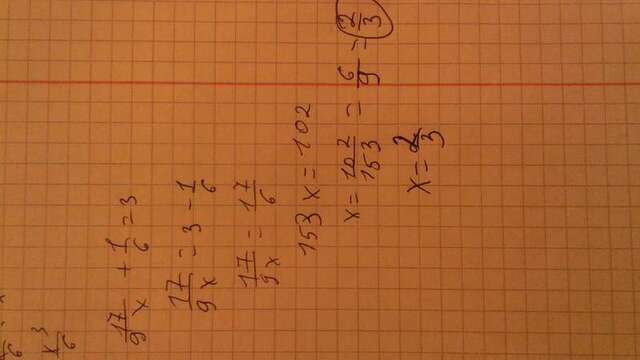 17/9x + 1/6 = 3
17/9x = 3 - 1/6
17/9x = 17/6
153x = 102
x = 102/153 = 6/9 = 2/3
x = 2/3